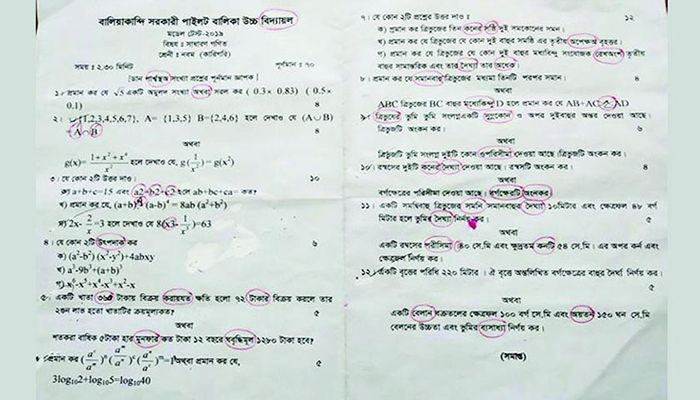 বালিয়াকান্দি সরকারী পাইলট বালিকা উচ্চ বিদ্যায়ল
মডেল টেস্ট-২০১৯
বিষয় : সাধারণ গণিত
শ্রেনী : নবম (কারিগরি)
সময় : ২.৩০ মিনিট পূর্নমান : ৭০
[ডান পার্শ্বস্থ সংখ্যা প্রশ্নের পূর্নমান জ্ঞাপক]
১। প্রমান কর যে √5 একটি অমুলদ সংখ্যা অথবা সরল কর ( 0.3× 0.83) ( 0.5×
0.1) ৪
২। ∪{1,2,3,4,5,6,7}, A= {1,3,5} B={2,4,6} হলে দেখাও যে (A∪B)
=A∩B ৪
অথবা
g(x)= (1+x²+x⁴)/x² হলে দেখাও যে, g(1/x²) = g(x²)
৩। যে কোন ২টি উত্তর দাও। ১০
ক) a+b+c=15 এবং a2+b2+c2 হলে ab+bc+ca= কত?
খ) প্রমান কর যে, (a+b)⁴-(a-b)⁴= 8ab (a²+b²)
গ) 2x- 2/x =3 হলে দেখাও যে 8(x3- 1/x³)=63
৪। যে কোন ২টি উৎপাদক কর ৬
ক) (a²-b²) (x²-y²)+4abxy
খ) a³-9b³+(a+b)³
গ) x⁶-x⁵+x⁴-x³+x²-x
৫। একটি খাতা ৩৬ টাকায় বিক্রয় করায়যত ক্ষতি হলো ৭২ টাকার বিক্রয় করলে তার
২গুন লাভ হতো খাতাটির ক্রয়মুল্যকত? ৫
অথবা
শতকরা বার্ষিক ৫টাকা হার মুনাফার কত টাকা ১২ বছরে সবৃদ্ধিমূল ১২৮০ টাকা হবে?
৬। প্রমান কর =1অথবা প্রমান কর যে, ৫
3log₁₀2+log₁₀5=log₁₀40
৭। যে কোন ২টি প্রশ্নের উত্তর দাও : ১২
ক) প্রমান কর ত্রিভুজের তিন কনের সষ্ঠি দুই সমকোনের সমন।
খ) প্রমান কর যে ত্রিভুজের যে কোন দুই বাহুর সমষ্টি এর তৃতীয় অপেক্ষা বৃহত্তর।
গ) প্রমান কর যে ত্রিভুজের যে কোন দুই বাহুর মধ্যবিন্দু সংযোজক রেখঅংশ তৃতীয়
বাহুর সামান্তরিক এবং তার দৈঘ্যা তার অধেক।
৮। প্রমান কর যে সমানবাহু ত্রিভুজের মধ্যমা তিনটি পরপর সমান। ৪
অথবা
ABC ত্রিভুজের BC বাহুর মধ্যেকিন্দু D হলে প্রমান কর যে AB+AC > AD
৯। ত্রিভুযের ভুমি ভুমি সংলগ্নএকটি সুল্লকোন ও অপর দুইবাহুর অন্তর দেওয়া আছে।
ত্রিভুজটি অংকন কর। ৬
অথবা
ত্রিভুজটি ভুমি সংলগ্ন দুইটি কোন ওপরিসীমা দেওয়া আছে ত্রিভুজটি অংকন কর।
১০। রম্বসের দুইটি কনের দৈঘ্যা দেওয়া আছে। রম্বসটি অংকন কর। ৪
অথবা
বর্গক্ষেত্রের পরিসীমা দেওয়া আছে। বর্গক্ষেত্রেটি অংনকর
১১। একটি সমদ্বিবাহু ত্রিভুজের সমনি সমানবাহুর দৈর্ঘ্যা ১০মিটার এবং ক্ষেত্রফল ৪৮ বর্গ
মিটার হলে ভুমির দৈঘ্যা নির্ণয় কর। ৫
অথবা
একটি রম্বসের পরীসীমা ৪০ সে.মি এবং ক্ষুদ্রতম কনটি ৫৪ সে.মি। এর অপর কর্ন এবং
ক্ষেত্রেল নির্ণয় কর।
১২। একটি বৃত্তের পরিধি ২২০ মিটার। ঐ বৃত্তে অন্তর্লিখিত বর্গক্ষেত্রের বাহুর দৈর্ঘ্য নির্ণয় কর।
৫
অথবা
একটি বেলান বক্রতলের ক্ষেত্রফল ১০০ বর্গ সে.মি এবং অয়তন ১৫০ ঘন সে.মি
বেলনের উচ্চতা এবং ভুমির ব্যসাধ্য নির্ণয় কর।
(সমাপ্ত)